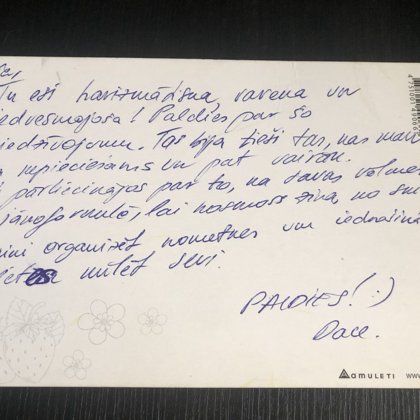 Tu esi harizmātiska, varena un
iedvesmojoša! Paldies par šo
piedzīvojumu. Tas bija tieši tas, kas man
nepieciešams un pat vairāk.
pārliecinājos par to, ka savas vēlmes
jānoformulē, lai kosmoss zina, ko
organizēt nometnes un iedrošināt
mīlēt sevi.
PALDIES! :)
Dace.
AMULETI www.